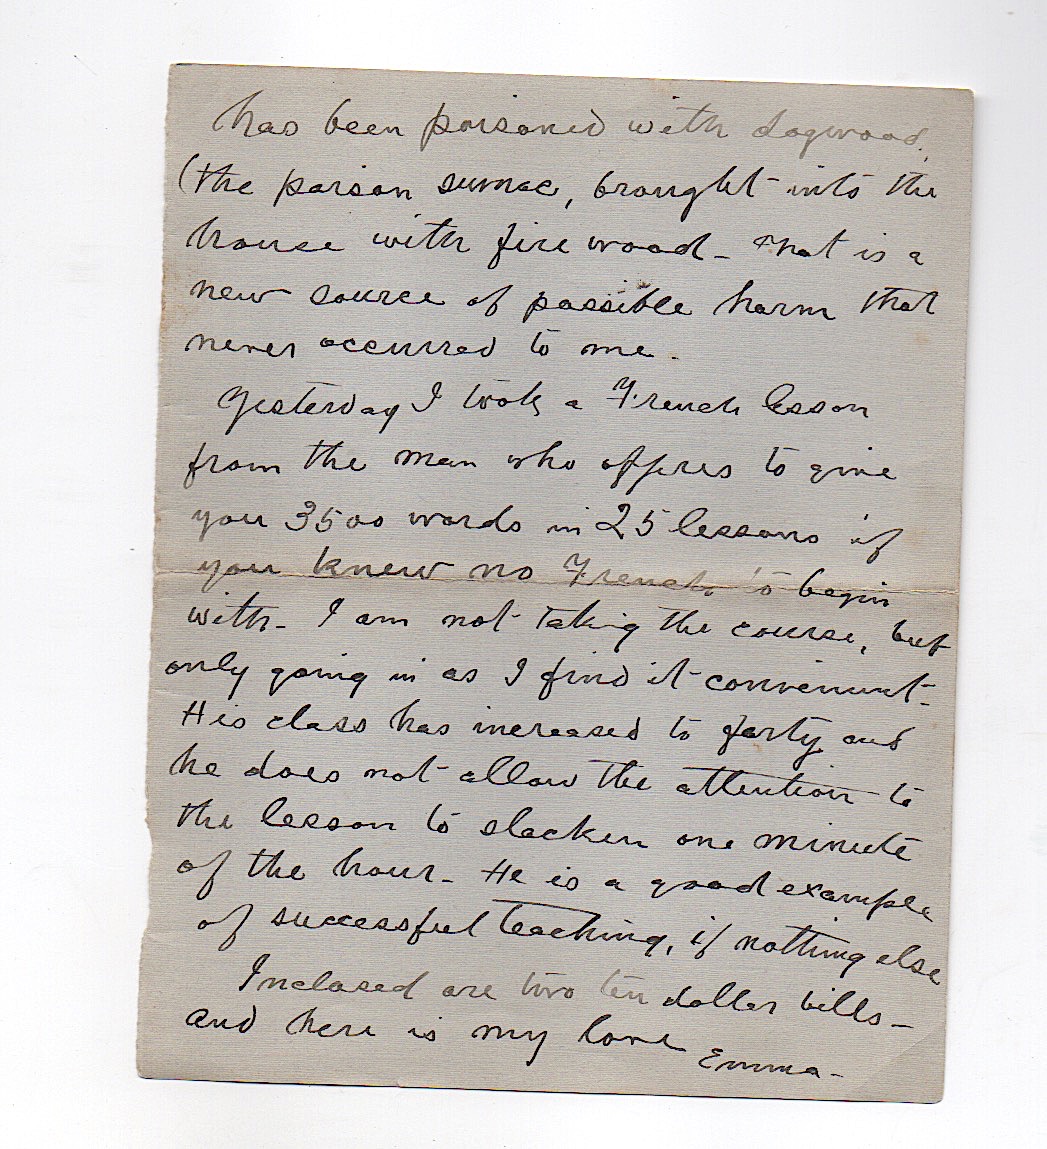 has been poisoned with dogwood,
(the poison sumac, brought into the
house with fire wood - That is a
new source of possible harm that
never occurred to me.
Yesterday I took a French lesson
from the man who offers to give
you 3500 words in 25 lessons if
you knew no French to begin
with - I am not taking the course, but
only going in as I find it convenient -
His class has increased to forty and
he does not allow the attention to
the lesson to slacken one minute
of the hour - He is a good example
of successful teaching, if nothing else
Inclosed are two ten dollar bills -
and here is my love Emma -